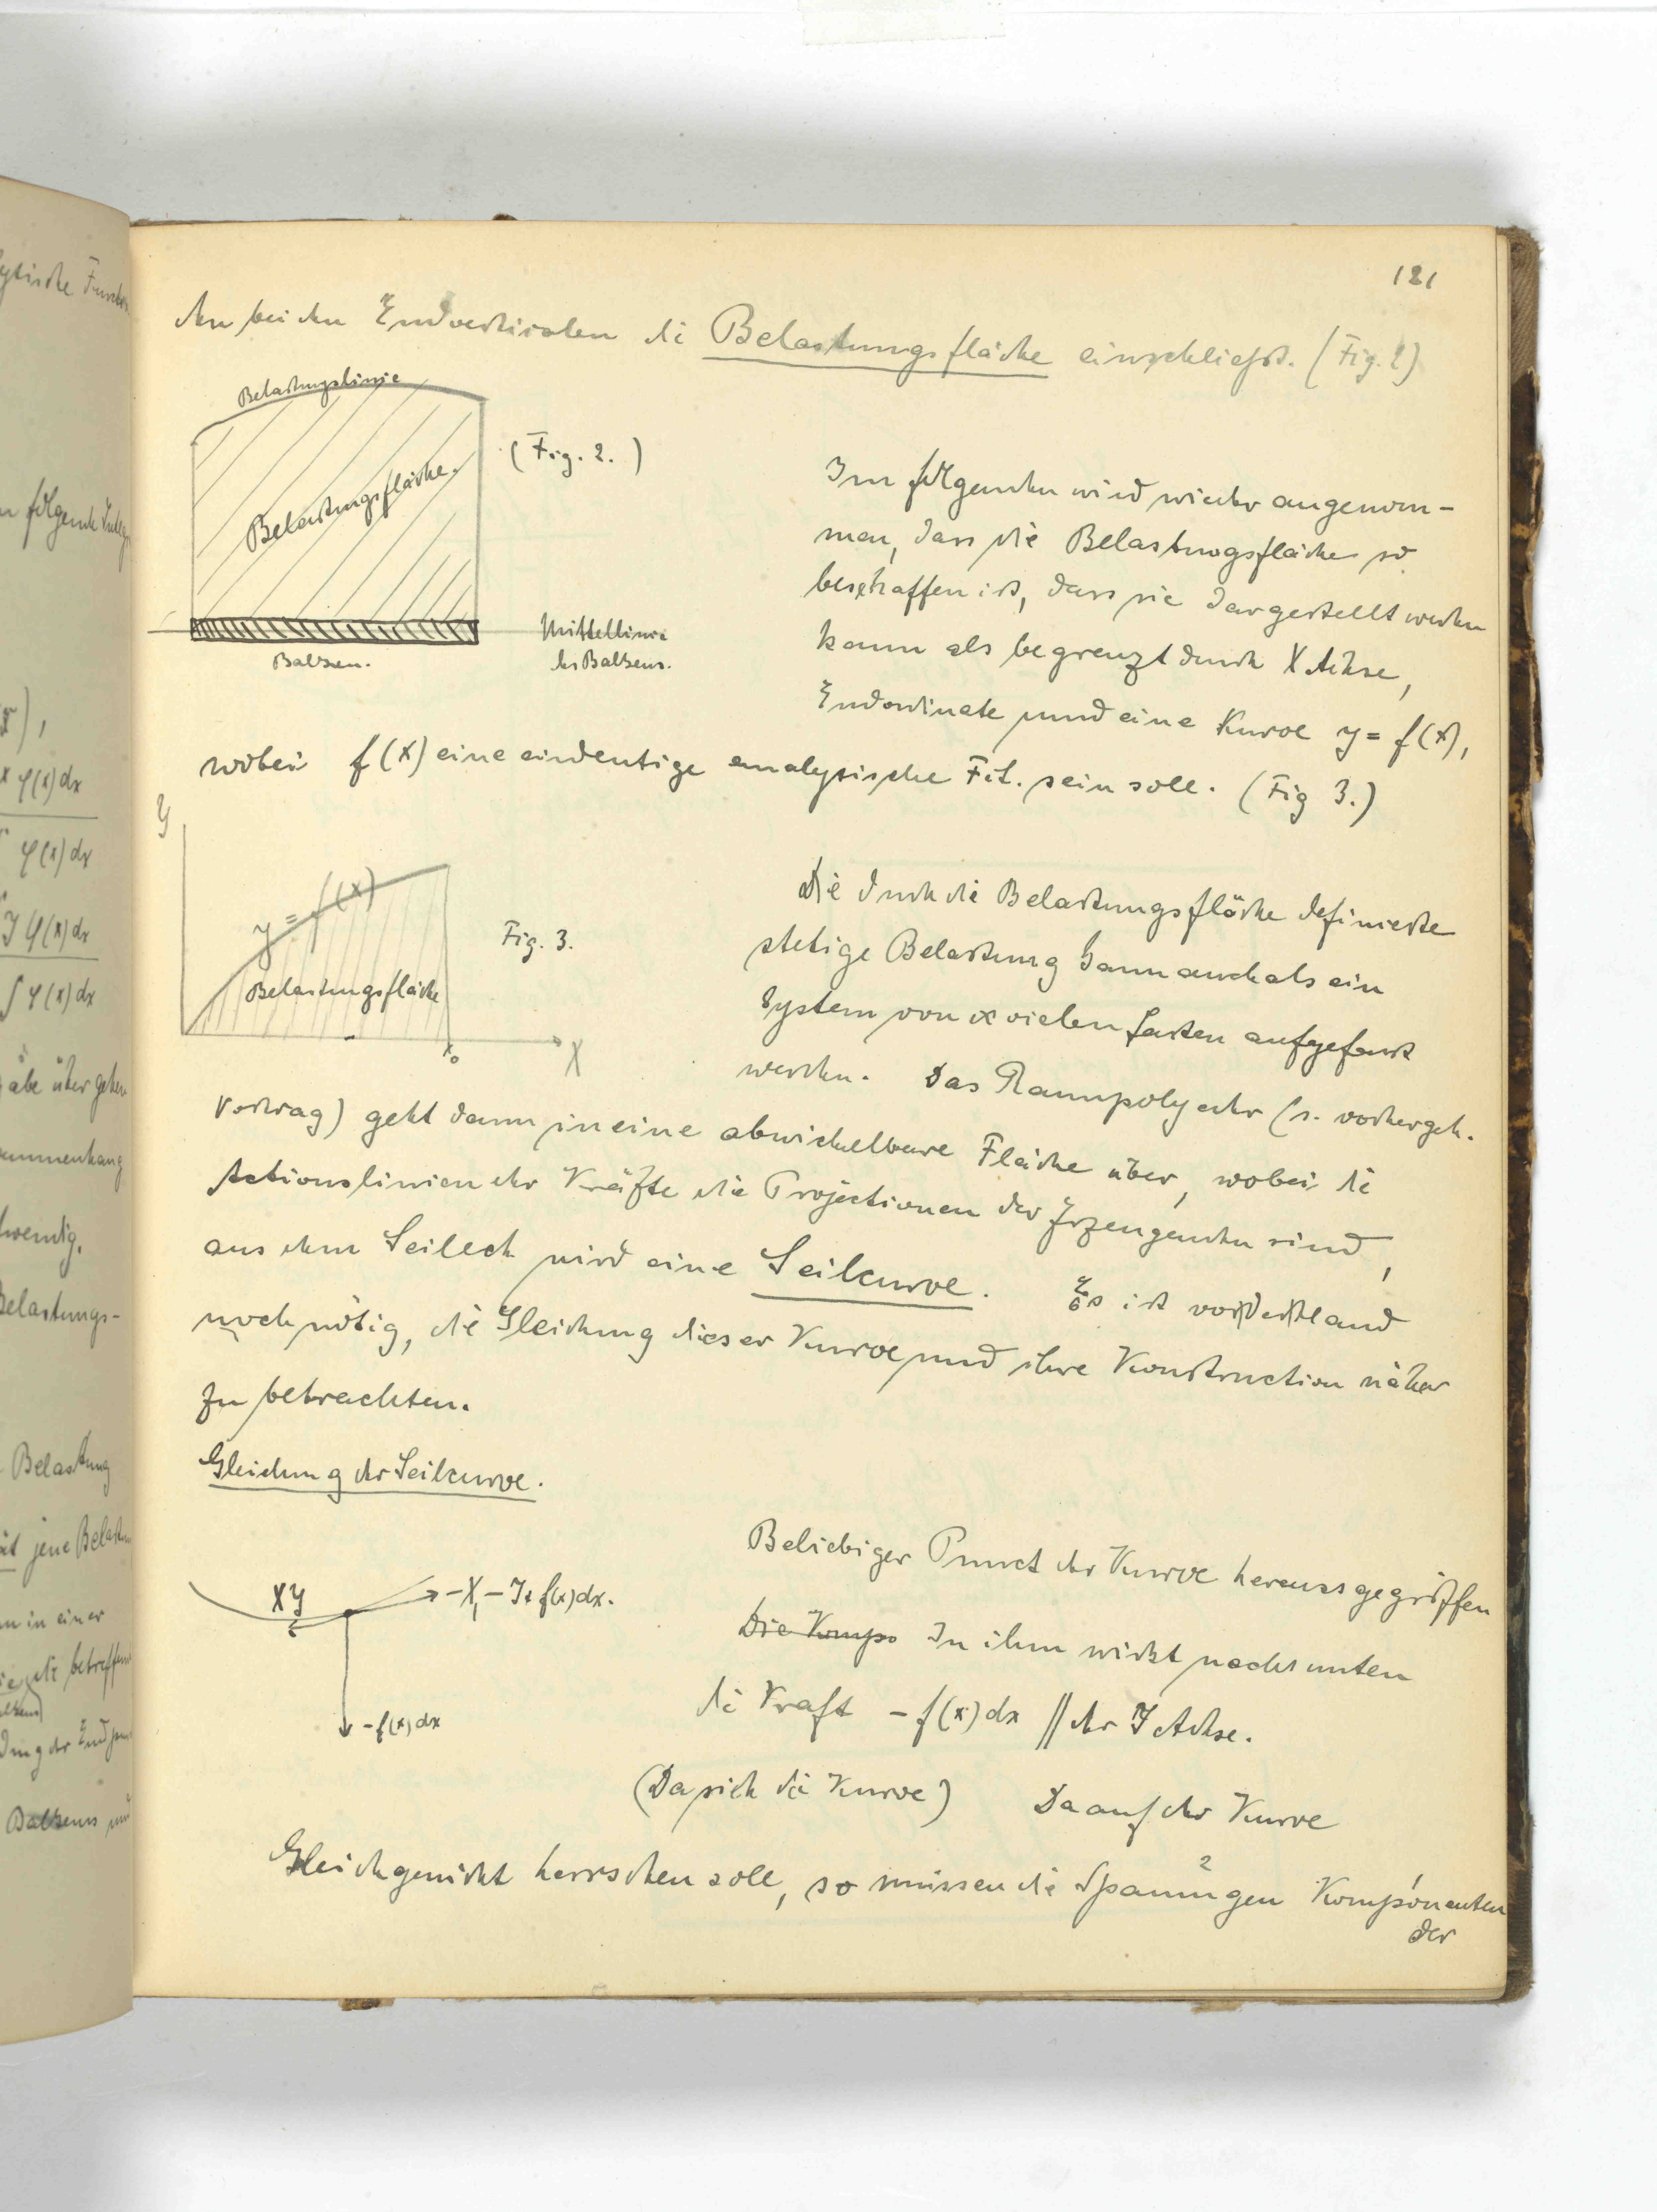 121
den beiden Endvertikalen die Belastungsfläche einschliesst. (Fig. 2)
Belastungslinie
(Fig. 2.)
Belastungsfläche.
Mittellinie
des Balkens.
Balken.
Im folgenden wird wieder angenom-
men, dass die Belastungsfläche so
beschaffen ist, dass sie dargestellt werden
kann als begrenzt durch X Achse,
Endordinate und eine Kurve y = f(x),
wobei f(x) eine eindeutige analysische Fct. sein soll. (Fig 3.)
Y
y = f(x)
Fig. 3.
Belastungsfläche
x₀
X
Die durch die Belastungsfläche definierte
stetige Belastung kann auch als ein
System von ∞ vielen Lasten aufgefasst
werden. Das Raumpolyeder (s. vorhergeh.
Vortrag) geht dann in eine abwickelbare Fläche über, wobei die
Actionslinien der Kräfte die Projectionen der Erzeugenden sind,
aus dem Seileck wird eine Seilcurve. Es ist vorderhand
noch nötig, die Gleichung dieser Kurve und ihre Konstruction näher
zu betrachten.
Gleichung der Seilcurve.
XY
-X, -Y+f(x)dx.
-f(x)dx
Beliebiger Punct der Kurve herausgegriffen
Die Komp. In ihm wirkt nach unten
die Kraft -f(x)dx || der Y Achse.
(Da sich die Kurve) Da auf der Kurve
Gleichgewicht herrschen soll, so müssen die Spannungen 2 Komponenten 1
der
ytische Function
n folgende Integ
φ(x)dx
φ(x)dx
Y φ(x)dx
∫φ(x)dx
äbe übergehen
ammenhang
twendig.
Belastungs-
Belastung
jene Belastun
n in einer
die betreffen
Balkens und